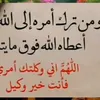 ومن ترك أمره إلى الله
أعطاه الله فوق مايتمناه
اللهم إني وكلتك أمري
فأنت خير وكيل